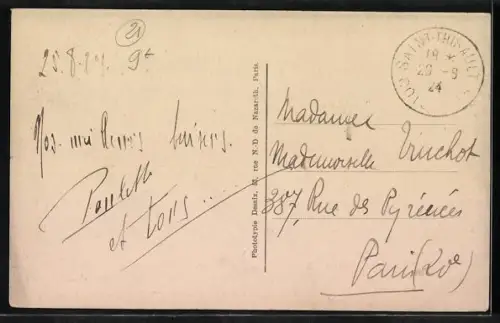 21
25.8.24. 9h
Nos meilleurs baisers.
Paulette
et tous...
Phototypie Desaix, rue N.-D de Nazareth, Paris.
SAINT-THIBAULT
18 *
29 -8
24
Madame et
Mademoiselle Truchot
387, Rue des Pyrénées
Paris (XXe)